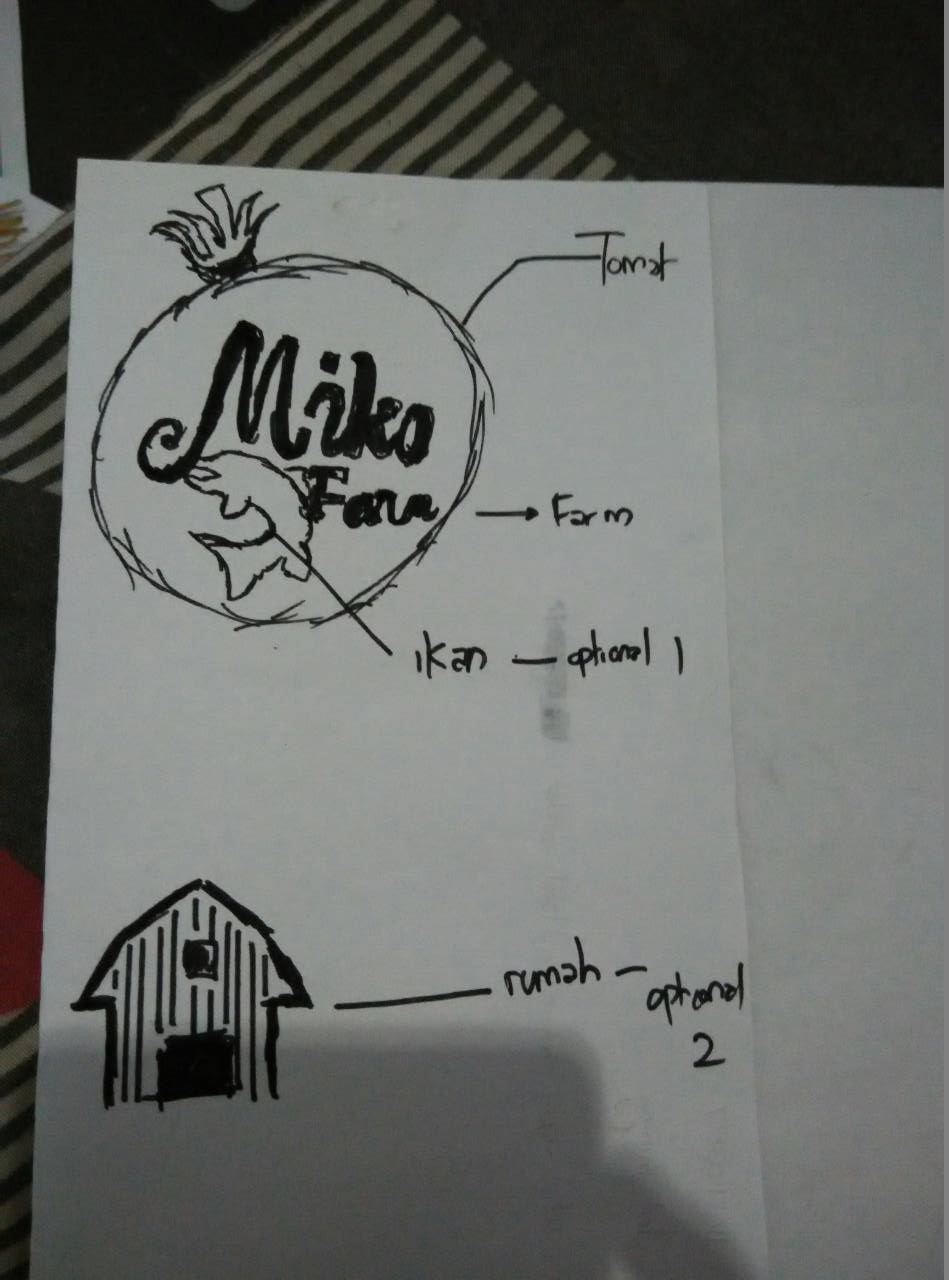 Tomat
Miko
Farm
Farm
ikan — optional 1
rumah — optional
2